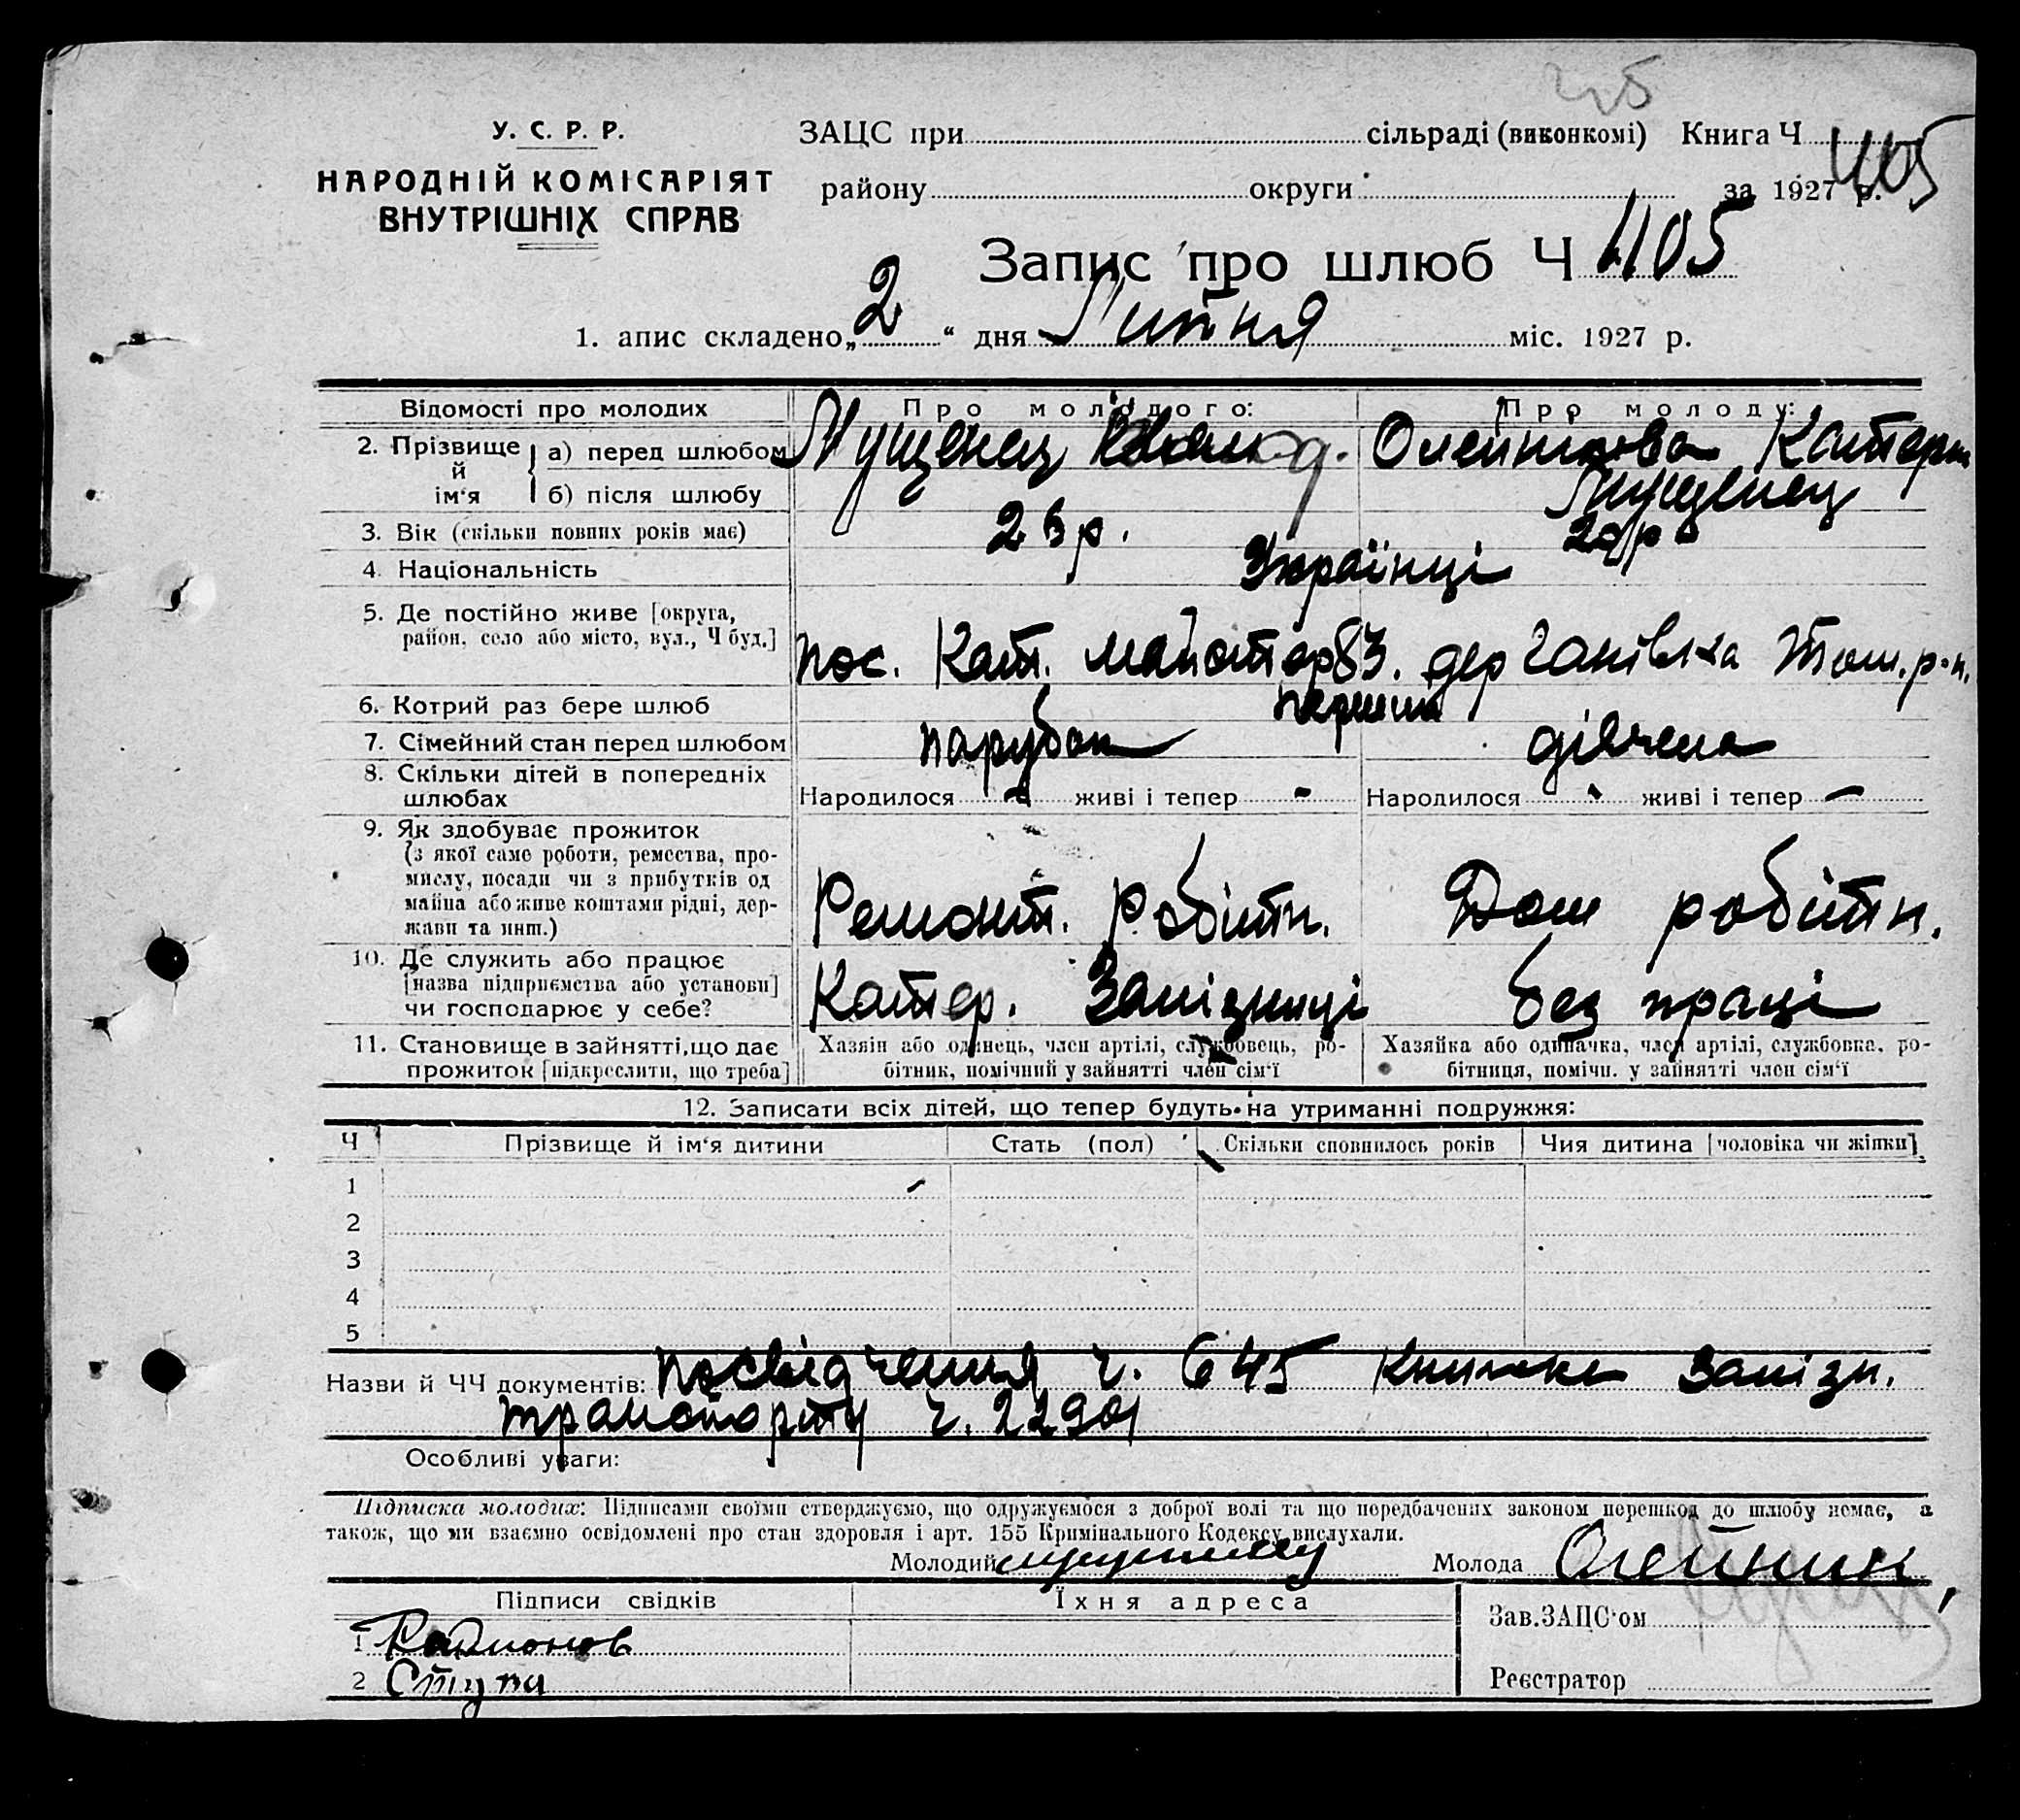 У. С. Р. Р.
НАРОДНІЙ КОМІСАРІЯТ
ВНУТРІШНІХ СПРАВ
ЗАЦС при сільраді (виконкомі) Книга Ч
району округи за 1927 р.
Запис про шлюб Ч 405
1. апис складено „2“ дня Липня міс. 1927 р.
Відомості про молодих Про молодого: Про молоду:
2. Прізвище й ім'я а) перед шлюбом Мущенец Олейнікова Катерин
б) після шлюбу Мущенец
3. Вік (скільки повних років має) р. р.
4. Національність Українці
5. Де постійно живе [округа, район, село або місто, вул., Ч буд.] пос. Кат. майстор 83. дер Ганівка р-н.
6. Котрий раз бере шлюб перший
7. Сімейний стан перед шлюбом парубок дівчена
8. Скільки дітей в попередніх шлюбах Народилося - живі і тепер - Народилося - живі і тепер —
9. Як здобуває прожиток
(з якої саме роботи, ремества, про-
мислу, посади чи з прибутків од
майна або живе коштами рідні, дер-
жави та инш.) Ремонт. Робітн. Дом робітн.
10. Де служить або працює
[назва підприємства або установи]
чи господарює у себе? Катер. Залізниці без праці
11. Становище в зайнятті, що дає
прожиток [підкреслити, що треба]
Хазяїн або одинець, член артілі, службовець, ро-
бітник, помічний у зайнятті член сім'ї
Хазяйка або одиначка, член артілі, службовка, ро-
бітниця, помічн. у зайнятті член сім'ї
12. Записати всіх дітей, що тепер будуть на утриманні подружжя:
Ч Прізвище й ім'я дитини Стать (пол) Скільки сповнилось років Чия дитина [чоловіка чи жінки]
1
2
3
4
5
Назви й ЧЧ документів: посвідчення ч. 645 Книжка Залізн.
транспорту ч. 22901
Особливі уваги:
Підписка молодих: Підписами своїми стверджуємо, що одружуємося з доброї волі та що передбачених законом перешкод до шлюбу немає, а
також, що ми взаємно освідомлені про стан здоровля і арт. 155 Кримінального Кодексу вислухали.
Молодий Молода Олейник
Підписи свідків Їхня адреса
Зав.ЗАЦС'ом
1 Радионов
2 Ступа
Реєстратор